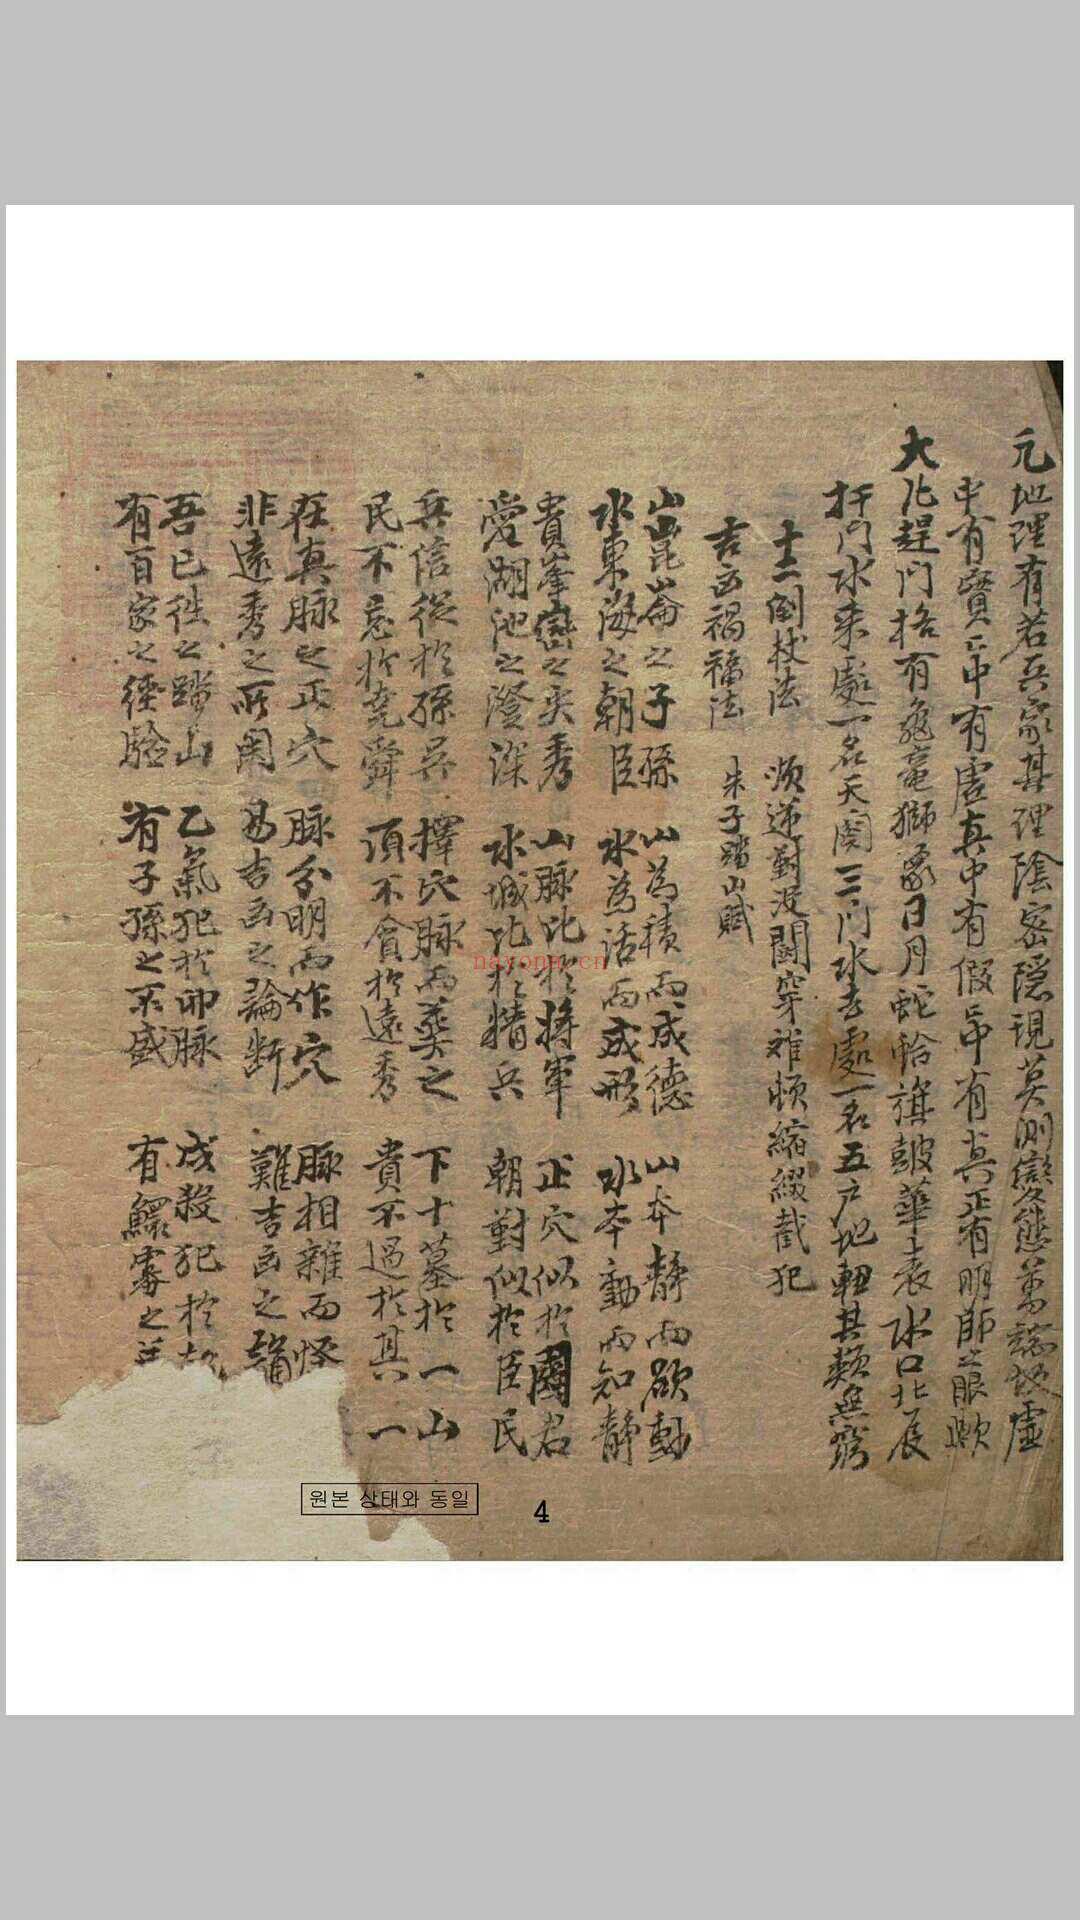 元地理有若兵家其理陰密隱現莫測變態萬端故虛
中有實實中有虛真中有假假中有真正有明師之眼歟
大凡捍門格有龜竜獅象日月蛇蛤旗皷華表水口北辰
扞門水来處一名天関三門水去處一名五户地軸其類無窮
十二倒杖法 順逆對没開穿離頓縮綴截犯
吉凶禍福法 朱子踏山賦
山崑崙之子孫 山為積而成德 山本靜而欲動
水東海之朝臣 水為活而成形 水本動而知靜
貴峯巒之尖秀 山脉比於將軍 正穴似於國君
愛湖池之澄深 水城比於精兵 朝對似於臣民
兵信從於孫吳 擇穴脉而葬之 下十墓於一山
民不忘於堯舜 頂不貪於遠秀 貴不過於其一
在真脉之正穴 脉分明而作穴 脉相雜而怪
非遠秀之所関 易吉凶之論断 難吉凶之
吾已往之踏山 乙氣犯於卯脉 成殺犯於
有百家之經驗 有子孫之不盛 有鰥寡之
nayona.cn
원본 상태와 동일
4